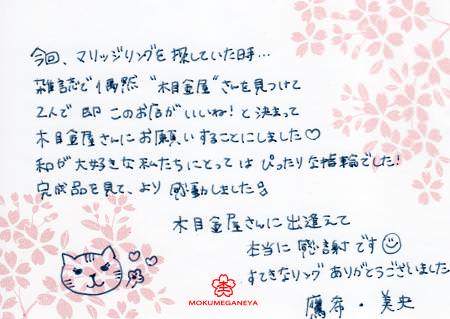 今回、マリッジリングを探していた時…
雑誌で偶然 “木目金屋” さんを見つけて
2人で 即 このお店がいいね! と 決まって
木目金屋さんに お願い することにしました♡
和が 大好きな 私たちにとっては ぴったりな指輪でした!
完成品を見て、より 感動しました
木目金屋さんに 出逢えて
本当に 感謝です☺
すてきなリング ありがとうございました
鷹希・美央
MOKUMEGANEYA